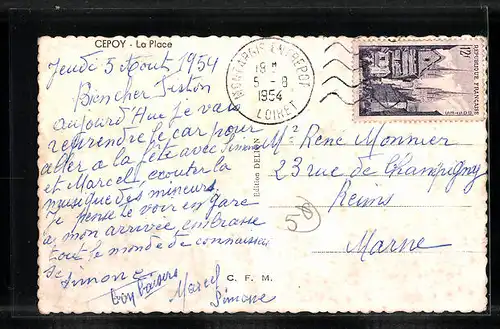 CEPOY - La Place
Jeudi 5 Aout 1954
Bien cher Tiston
aujourd'Hui je vais
reprendre le car pour
aller a la fête avec Simone
et Marcel, écouter la
musique des mineurs.
Je pense te voir en gare
a mon arrivée embrasse
tout le monde de connaissance
Simone
Bons Baisers
Marcel
Simone
Edition DELION
C. F. M.
MONTARGIS ENTREPOT
19 H
5 - 8
1954
LOIRET
12F
REPUBLIQUE FRANÇAISE
Mr René Monnier
23 rue de Champigny
Reims
Marne